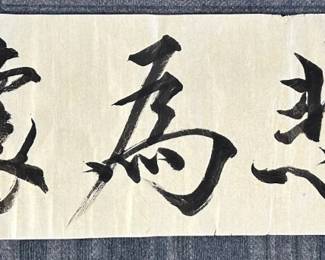 悲為懷